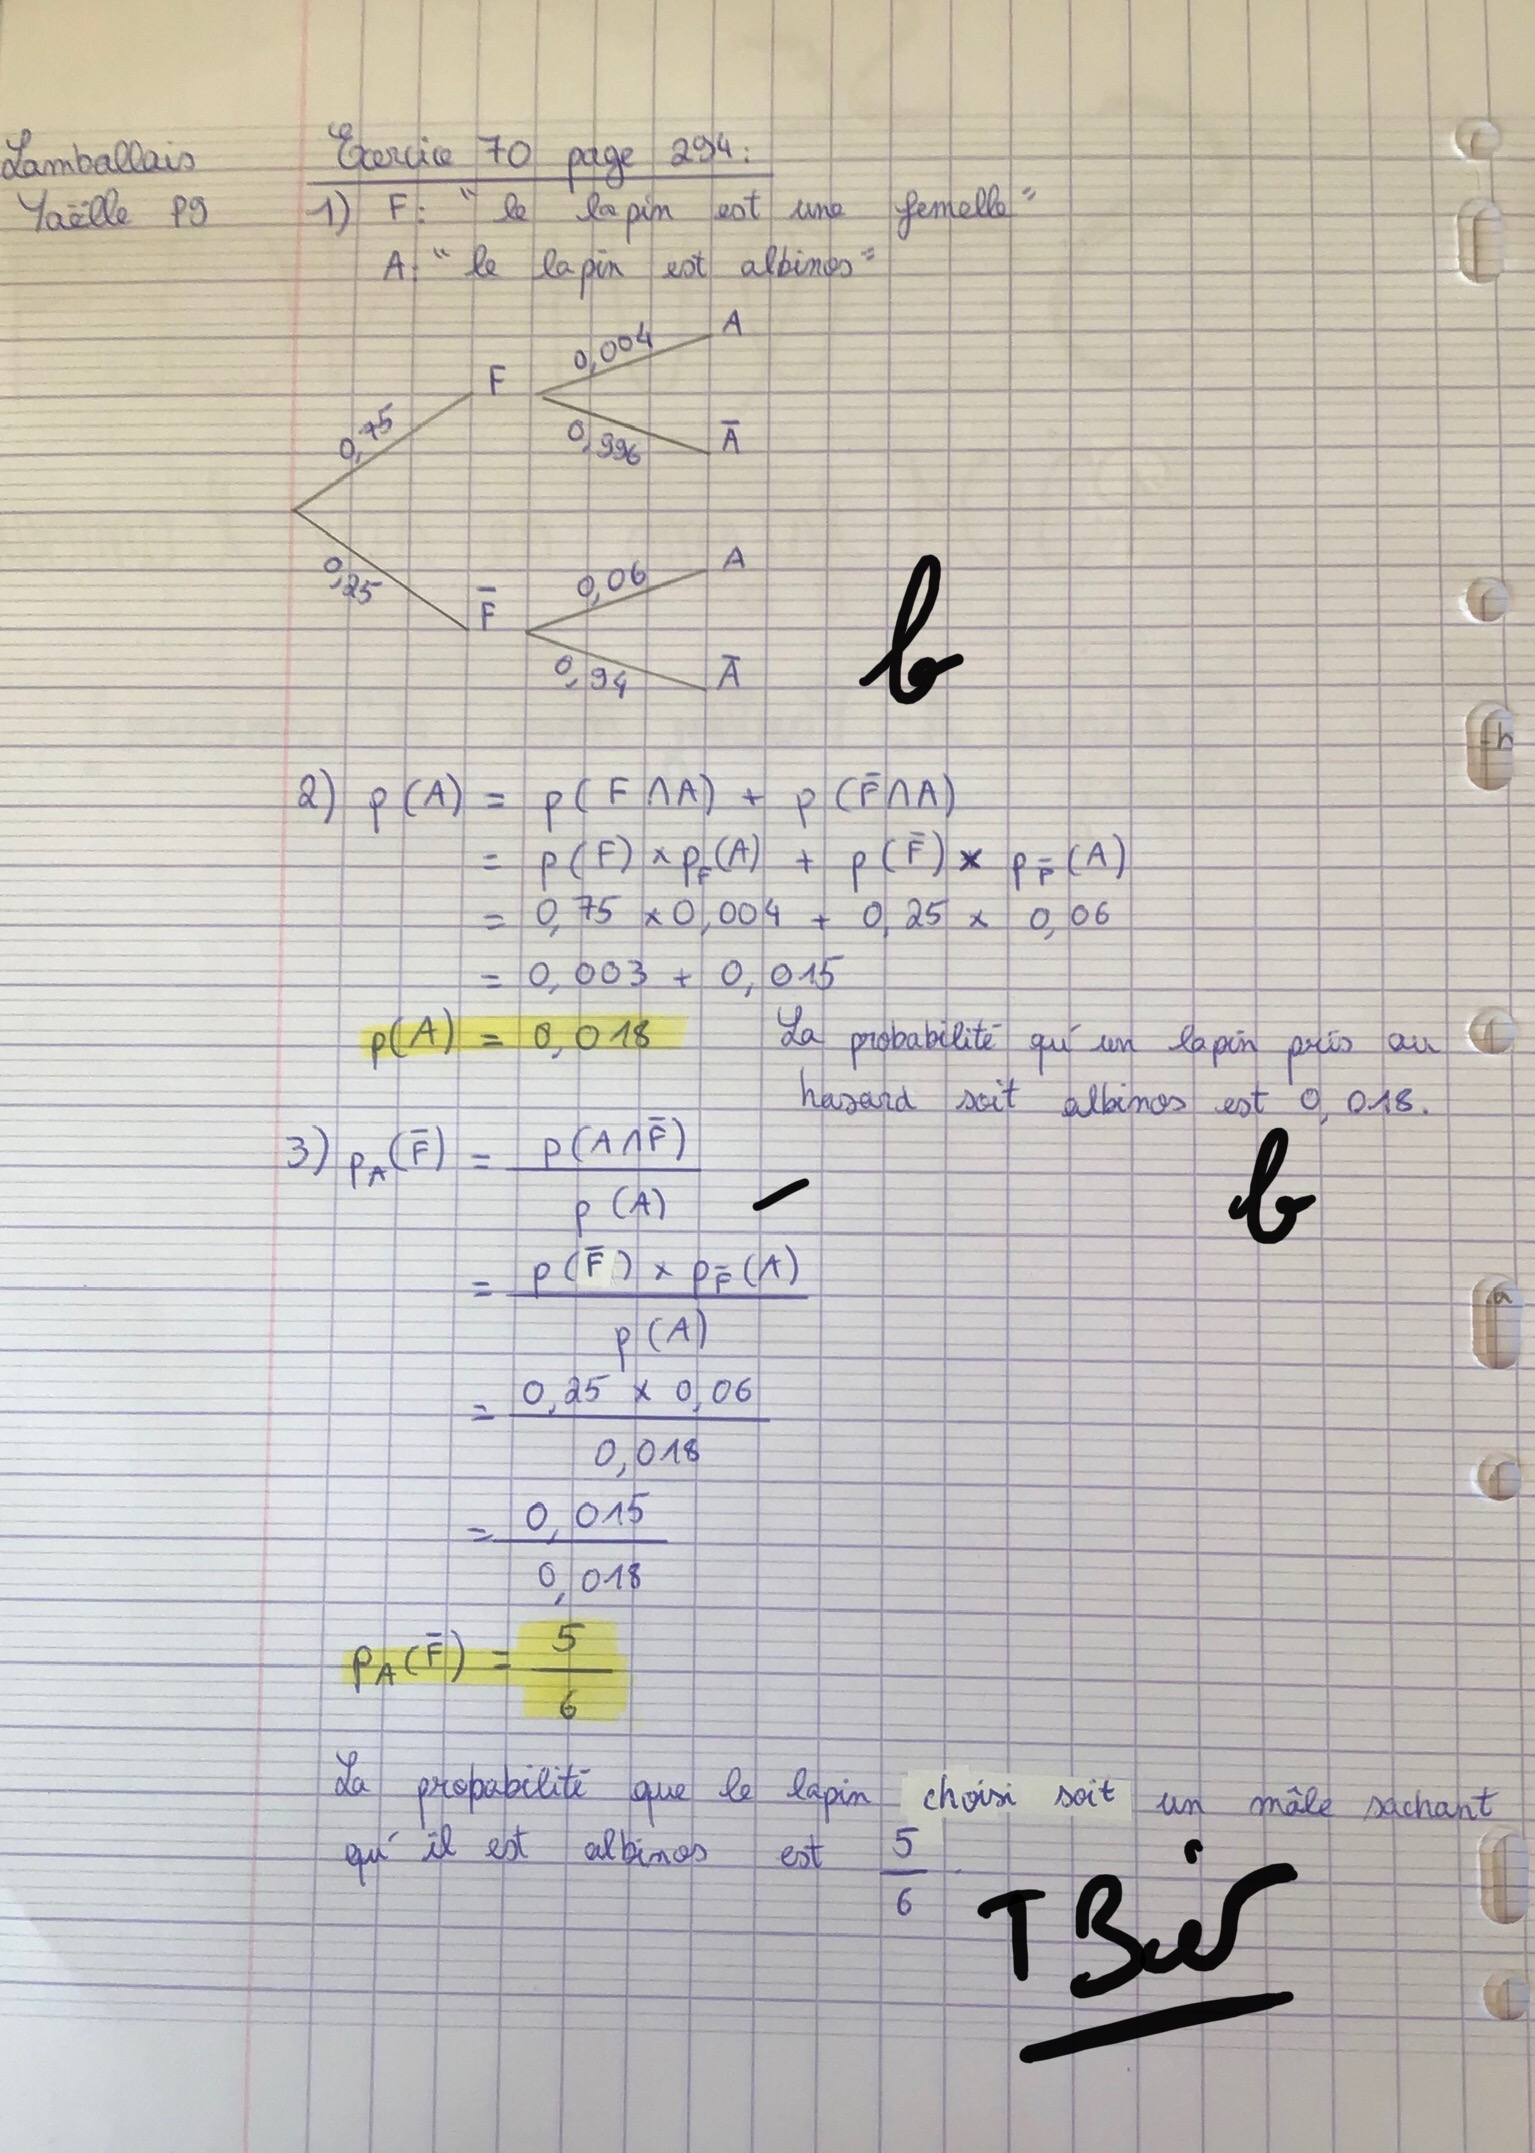 Lamballais
Yaëlle P9
Exercice 70 page 294:
1) F: "le lapin est une femelle"
A: "le lapin est albinos"
0,75 F 0,004 A
0,996 A̅
0,25 F̅ 0,06 A
0,94 A̅
b
2) p(A) = p(F∩A) + p(F̅∩A)
= p(F) × p_F(A) + p(F̅) × p_F̅(A)
= 0,75 × 0,004 + 0,25 × 0,06
= 0,003 + 0,015
p(A) = 0,018 La probabilité qu'un lapin pris au
hasard soit albinos est 0,018.
b
3) p_A(F̅) = p(A∩F̅)
p(A)
= p(F̅) × p_F̅(A)
p(A)
= 0,25 × 0,06
0,018
= 0,015
0,018
p_A(F̅) = 5
6
La probabilité que le lapin choisi soit un mâle sachant
qu'il est albinos est 5
6
T Bien